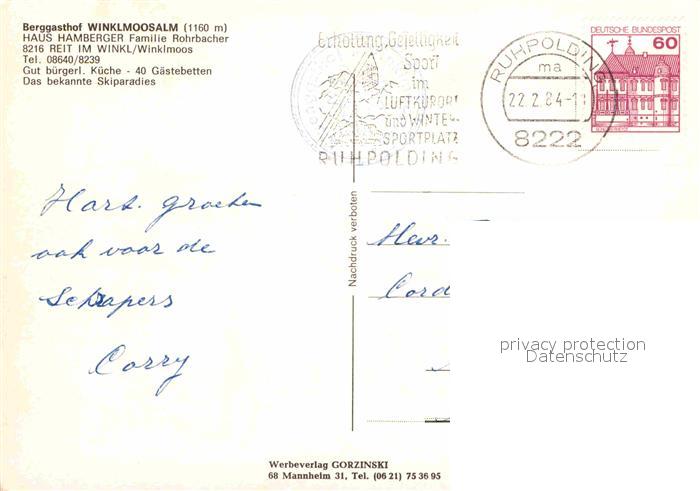 Berggasthof WINKLMOOSALM (1160 m)
HAUS HAMBERGER Familie Rohrbacher
8216 REIT IM WINKL/Winklmoos
Tel. 08640/8239
Gut bürgerl. Küche - 40 Gästebetten
Das bekannte Skiparadies
Erholung, Geselligkeit
Sport
im
LUFTKURORT
und WINTER-
SPORTPLATZ
RUHPOLDING
RUHPOLDING
ma
22.2.84-1
8222
DEUTSCHE BUNDESPOST
60
Hart. groeten
ook voor de
Schrapers
Corry
Nachdruck verboten
Hevr.
Cord
privacy protection
Datenschutz
Werbeverlag GORZINSKI
68 Mannheim 31, Tel. (06 21) 75 36 95